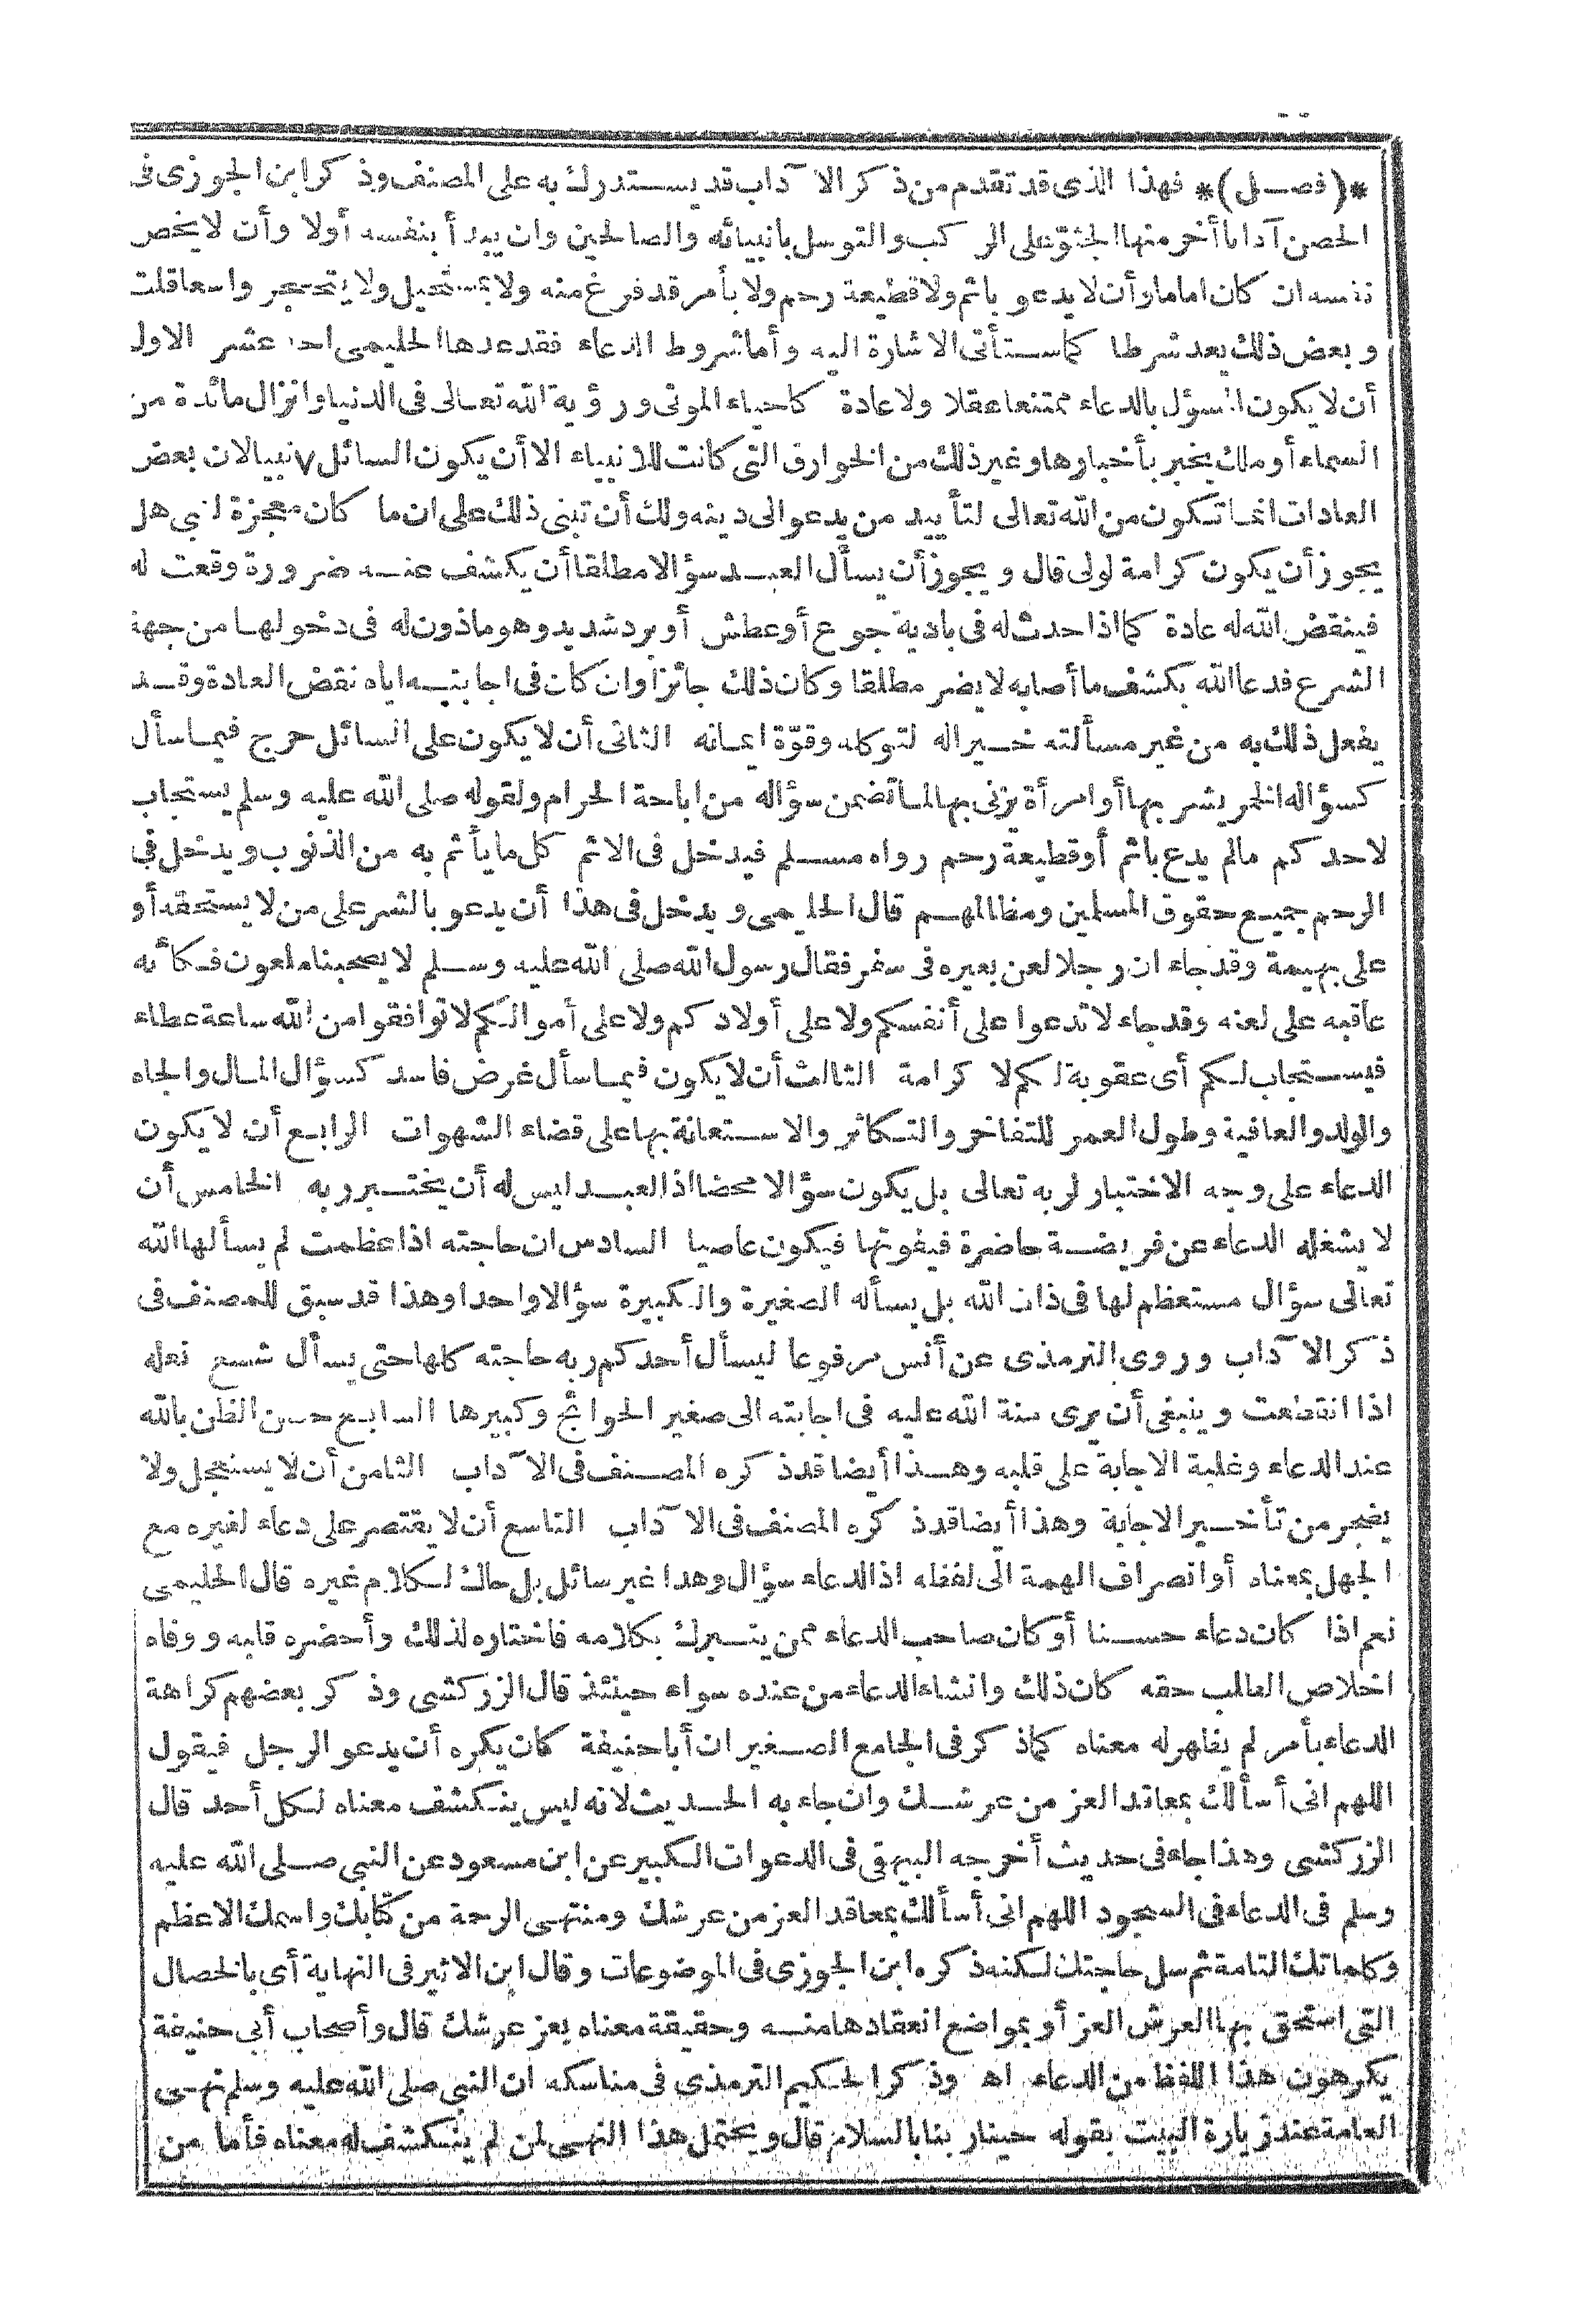 *(فصل)* فهذا الذى قد تقدم من ذكر الآداب قد يستدرك به على المصنف وذكر ابن الجوزى فى
الحصن آدابا أخر منها الجثو على الركب والتوسل بانبيائه والصالحين وان يبدأ بنفسه أولا وأن لا يخص
نفسه ان كان اماما وأن لا يدعو باثم ولا قطيعة رحم ولا بأمر قد فرغ منه ولا بمستحيل ولا يتحجر واسعا قلت
وبعض ذلك يعد شرطا كما ستأتى الاشارة اليه وأما شروط الدعاء فقد عدها الحليمى احد عشر الاول
أن لا يكون المسؤل بالدعاء ممتنعا عقلا ولا عادة كاحياء الموتى ورؤية الله تعالى فى الدنيا وانزال مائدة من
السماء أو ملك يخبر بأخبارها وغير ذلك من الخوارق التى كانت للانبياء الا أن يكون السائل نبيا لان بعض
العادات انما تكون من الله تعالى لتأييد من يدعو الى دينه ولك أن تبنى ذلك على ان ما كان معجزة لنبى هل
يجوز أن يكون كرامة لولى قال ويجوز أن يسأل العبد سؤالا مطلقا أن يكشف عنه ضرورة وقعت له
فينقض الله له عادة كما اذا حدث له فى بادية جوع أو عطش أو برد شديد وهو ماذون له فى دخولها من جهة
الشرع فدعا الله بكشف ما أصابه لا يضر مطلقا وكان ذلك جائزا وان كان فى اجابته اياه نقض العادة وقد
يفعل ذلك به من غير مسألته خيرا له لتوكله وقوّة ايمانه الثانى أن لا يكون على السائل حرج فيما سأل
كسؤاله الخمر يشربها أو امرأة يزنى بها لما تضمن سؤاله من اباحة الحرام ولقوله صلى الله عليه وسلم يستجاب
لاحدكم مالم يدع باثم أو قطيعة رحم رواه مسلم فيدخل فى الاثم كل ما يأثم به من الذنوب ويدخل فى
الرحم جميع حقوق المسلمين ومظالمهم قال الحليمى ويدخل فى هذا أن يدعو بالشر على من لا يستحقه أو
على بهيمة وقد جاء ان رجلا لعن بعيره فى سفر فقال رسول الله صلى الله عليه وسلم لا يصحبنا ملعون فكأنه
عاقبه على لعنه وقد جاء لا تدعوا على أنفسكم ولا على أولادكم ولا على أموالكم لا توافقوا من الله ساعة عطاء
فيستجاب لكم أى عقوبة لكم لا كرامة الثالث أن لا يكون فيما سأل غرض فاسد كسؤال المال والجاه
والولد والعافية وطول العمر للتفاخر والتكاثر والاستعانة بها على قضاء الشهوات الرابع أن لا يكون
الدعاء على وجه الاختبار لربه تعالى بل يكون سؤالا محضا اذ العبد ليس له أن يختبر ربه الخامس أن
لا يشغله الدعاء عن فريضة حاضرة فيفوتها فيكون عاصيا السادس ان حاجته اذا عظمت لم يسألها الله
تعالى سؤال مستعظم لها فى ذات الله بل يسأله الصغيرة والكبيرة سؤالا واحدا وهذا قد سبق للمصنف فى
ذكر الآداب وروى الترمذى عن أنس مرفوعا ليسأل أحدكم ربه حاجته كلها حتى يسأل شسع نعله
اذا انقطعت وينبغى أن يرى منة الله عليه فى اجابته الى صغير الحوائج وكبيرها السابع حسن الظن بالله
عند الدعاء وغلبة الاجابة على قلبه وهذا أيضا قد ذكره المصنف فى الآداب الثامن أن لا يستعجل ولا
يضجر من تأخير الاجابة وهذا أيضا قد ذكره المصنف فى الآداب التاسع أن لا يقتصر على دعاء لغيره مع
الجهل بمعناه أو انصراف الهمة الى لفظه اذ الدعاء سؤال وهذا غير سائل بل حاك لكلام غيره قال الحليمى
نعم اذا كان دعاء حسنا أو كان صاحب الدعاء ممن يتبرك بكلامه فاختاره لذلك وأحضره قلبه ووفاه
اخلاص الطلب حقه كان ذلك وانشاء الدعاء من عنده سواء حينئذ قال الزركشى وذكر بعضهم كراهة
الدعاء بأمر لم يظهر له معناه كما ذكر فى الجامع الصغير ان أبا حنيفة كان يكره أن يدعو الرجل فيقول
اللهم انى أسألك بمعاقد العز من عرشك وان جاء به الحديث لانه ليس ينكشف معناه لكل أحد قال
الزركشى وهذا جاء فى حديث أخرجه البيهقى فى الدعوات الكبير عن ابن مسعود عن النبى صلى الله عليه
وسلم فى الدعاء فى السجود اللهم انى أسألك بمعاقد العز من عرشك ومنتهى الرحمة من كتابك واسمك الاعظم
وكلماتك التامة ثم سل حاجتك لكنه ذكره ابن الجوزى فى الموضوعات وقال ابن الاثير فى النهاية أى بالخصال
التى استحق بها العرش العز أو بمواضع انعقادها منه وحقيقة معناه بعز عرشك قال وأصحاب أبى حنيفة
يكرهون هذا اللفظ من الدعاء اه وذكر الحكيم الترمذى فى مناسكه ان النبى صلى الله عليه وسلم نهى
العامة عند زيارة البيت بقوله حينا ربنا بالسلام قال ويحتمل هذا النهى لمن لم ينكشف له معناه فأما من